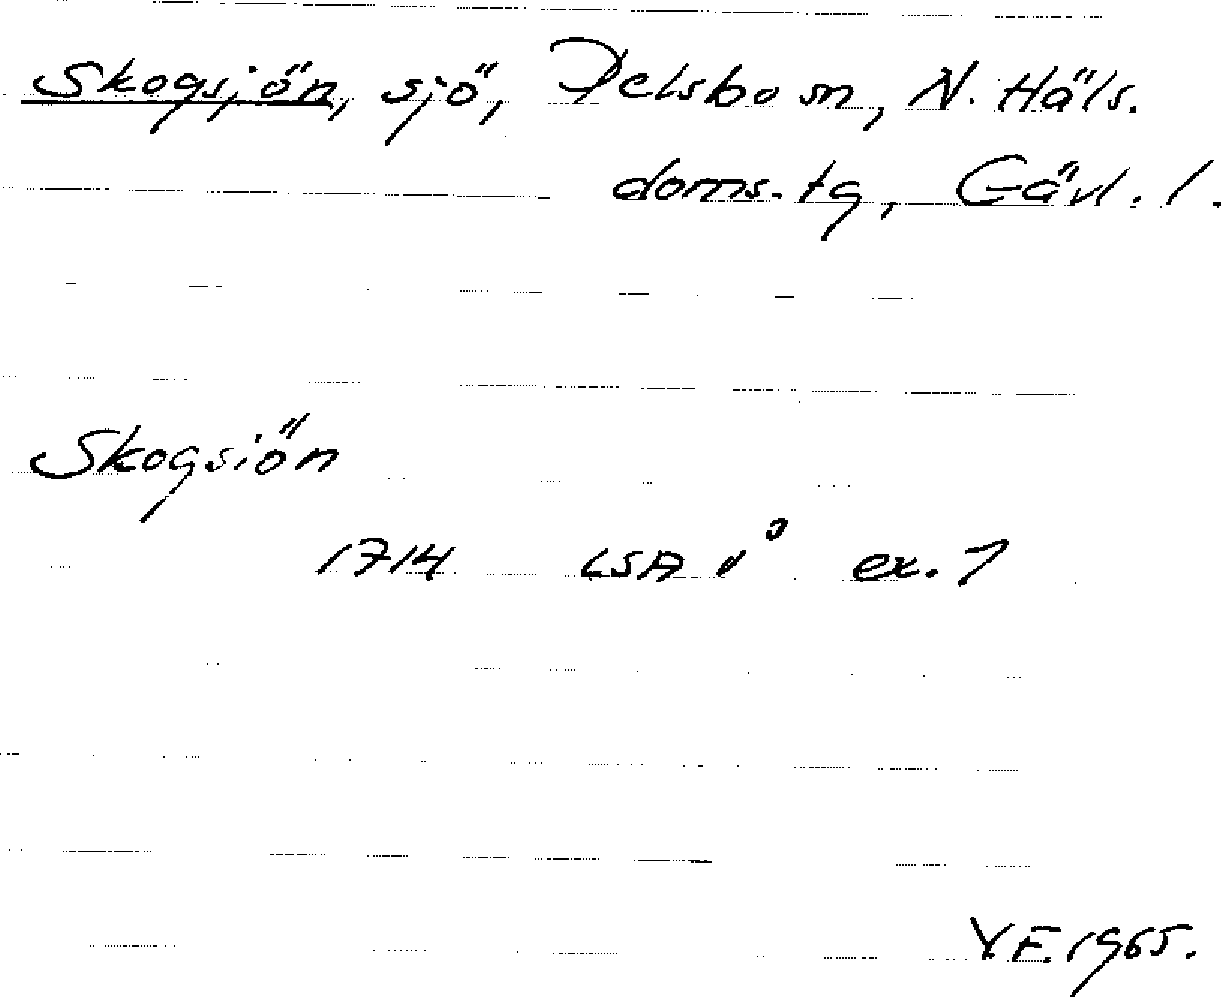 Skogsjön, sjö, Delsbo sn, N. Häls.
doms. tg, Gävl. l.
Skogsiön
1714 LSA 1° ex. 1
Y F. 1965.